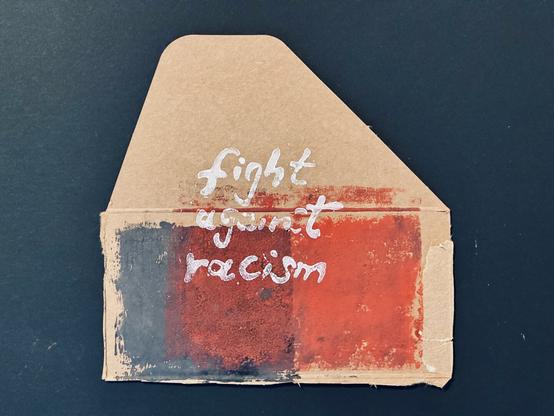 fight
against
racism